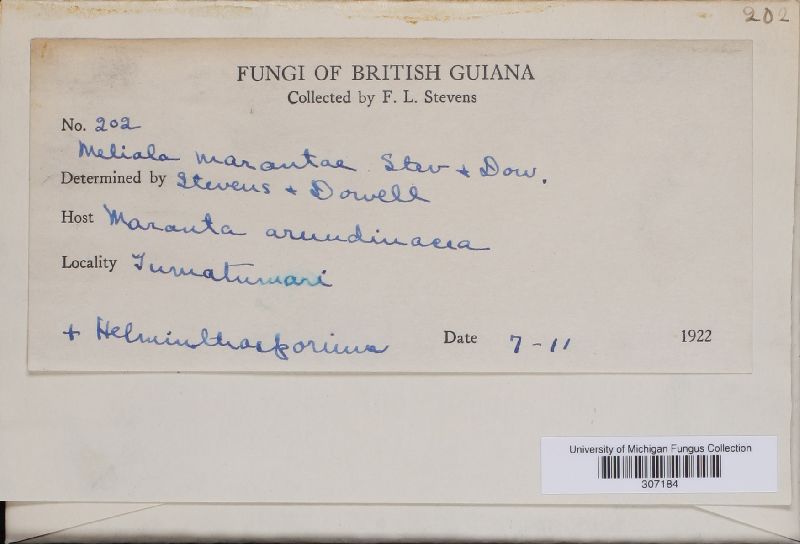 202
FUNGI OF BRITISH GUIANA
Collected by F. L. Stevens
No. 202
Meliola marantae Stev + Dow.
Determined by Stevens + Dowell
Host Maranta arundinacea
Locality Tumatumari
+ Helminthosporium Date 7-11 1922
University of Michigan Fungus Collection
307184